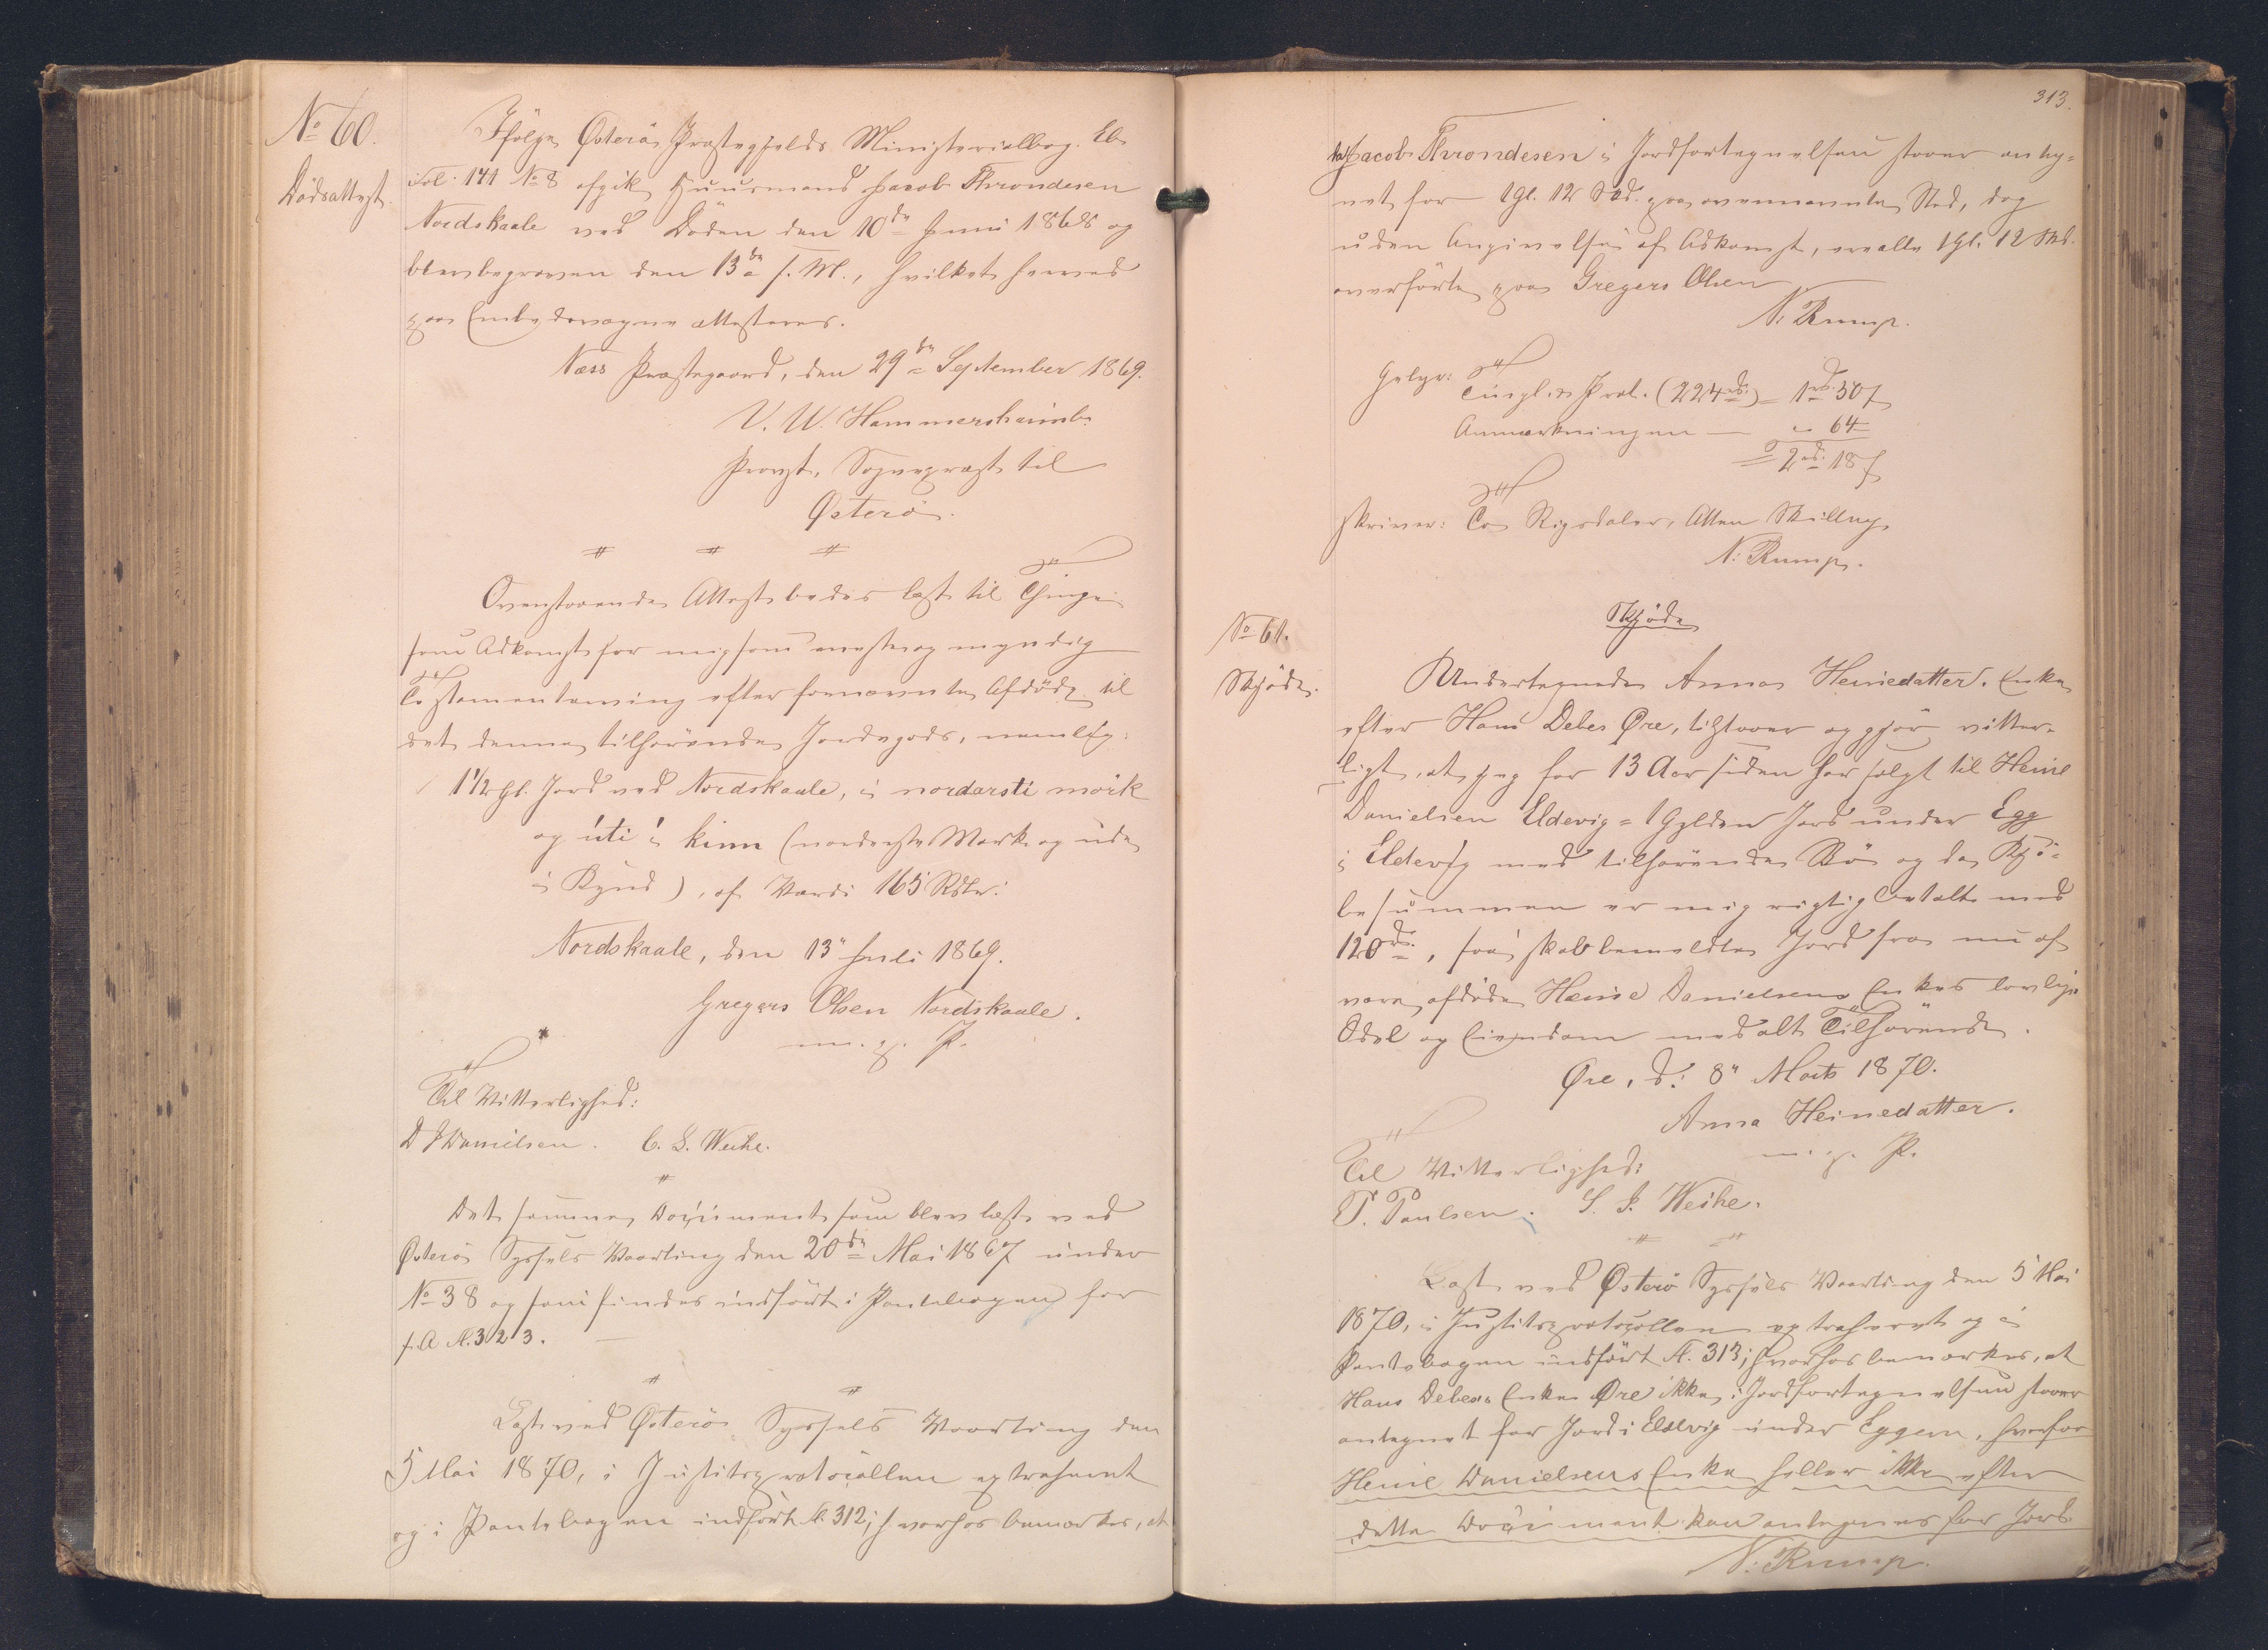 No 60.
Dödsattest.
Ifölge Østerö Præstegjelds Ministerialbog Eb.
Fol. 171 No 8 afgik Huusmand Jacob Throndesen
Nordskaale ved Döden den 10de Juni 1868 og
blev begraven den 13de s. M., hvilket herved
paa Embedsvegne attesteres.
Næss Præstegaard, den 29de September 1869.
V. U. Hammershaimb.
Provst, Sognepræst til
Østerö.
Ovenstaaende Attest bedes læst til Thinge
som Adkomst for mig som eneste og myndig
Testamentarving efter fornævnte Afdöde til
det denne tilhörende Jordegods, nemlig:
1 1/2 Gl. Jord ved Nordskaale, i nordarsti mörk
og úti í kinn (norderste Mark og ude
i Kynd), af Værdi 165 Rdlr.
Nordskaale, den 13" Juli 1869.
Gregers Olsen Nordskaale.
m. p. P.
Til Vitterlighed:
D J Danielsen. C. L. Weihe.
Det samme Document som blev læst ved
Østerö Syssels Vaarting den 20de Mai 1867 under
No 38 og som findes indfört i Pantebogen for
s. A. fl. 323.
Læst ved Østerö Syssels Vaarting den
5 Mai 1870, i Justitsprotocollen extraheret
og i Pantebogen indfört fl. 312; hvorhos bemærkes, at
313.
da Jacob Throndesen i Jordfortegnelsen staaer anteg-
net for 1 Gl. 12 Skd. paa ovennævnte Sted, dog
uden Angivelse af Adkomst, ere alle 1 Gl. 12 Skd.
overförte paa Gregers Olsen
N. Rump.
Gebyr:
Tingl. & Prot. (224 rd.) = 1 rd. 50 s
Anmærkningen — " 64
= 2 rd. 18 s
skriver: To Rigsdaler, Atten Skilling
N. Rump.
No 61.
Skjöde.
Skjöde
Undertegnede Anna Heinedatter. Enke
efter Hans Debes Øre, tilstaaer og gjör vitter-
ligt, at jeg for 13 Aar siden har solgt til Heine
Danielsen Eldevig = 1 Gylden Jord under Egg
i Eldevig med tilhörende Bö og da Kjö-
besummen er mig rigtig betalt med
120 rd., saa skal bemeldte Jord fra nu af
være afdöde Heine Danielsens Enkes lovlige
Odel og Eiendom med alt Tilhörende.
Øre, d. 8" Marts 1870.
Anna Heinedatter.
m. p. P.
Til Vitterlighed:
P. Poulsen. S. J. Weihe.
Læst ved Østerö Syssels Vaarting den 5 Mai
1870, i Justitsprotocollen extraheret og i
Pantebogen indfört fl. 313; hvorhos bemærkes, at
Hans Debeses Enke Øre ikke i Jordfortegnelsen staaer
antegnet for Jord i Eldevig under Eggen, hvorfor
Heine Danielsens Enke heller ikke efter
dette Document kan antegnes for Jord.
N. Rump.